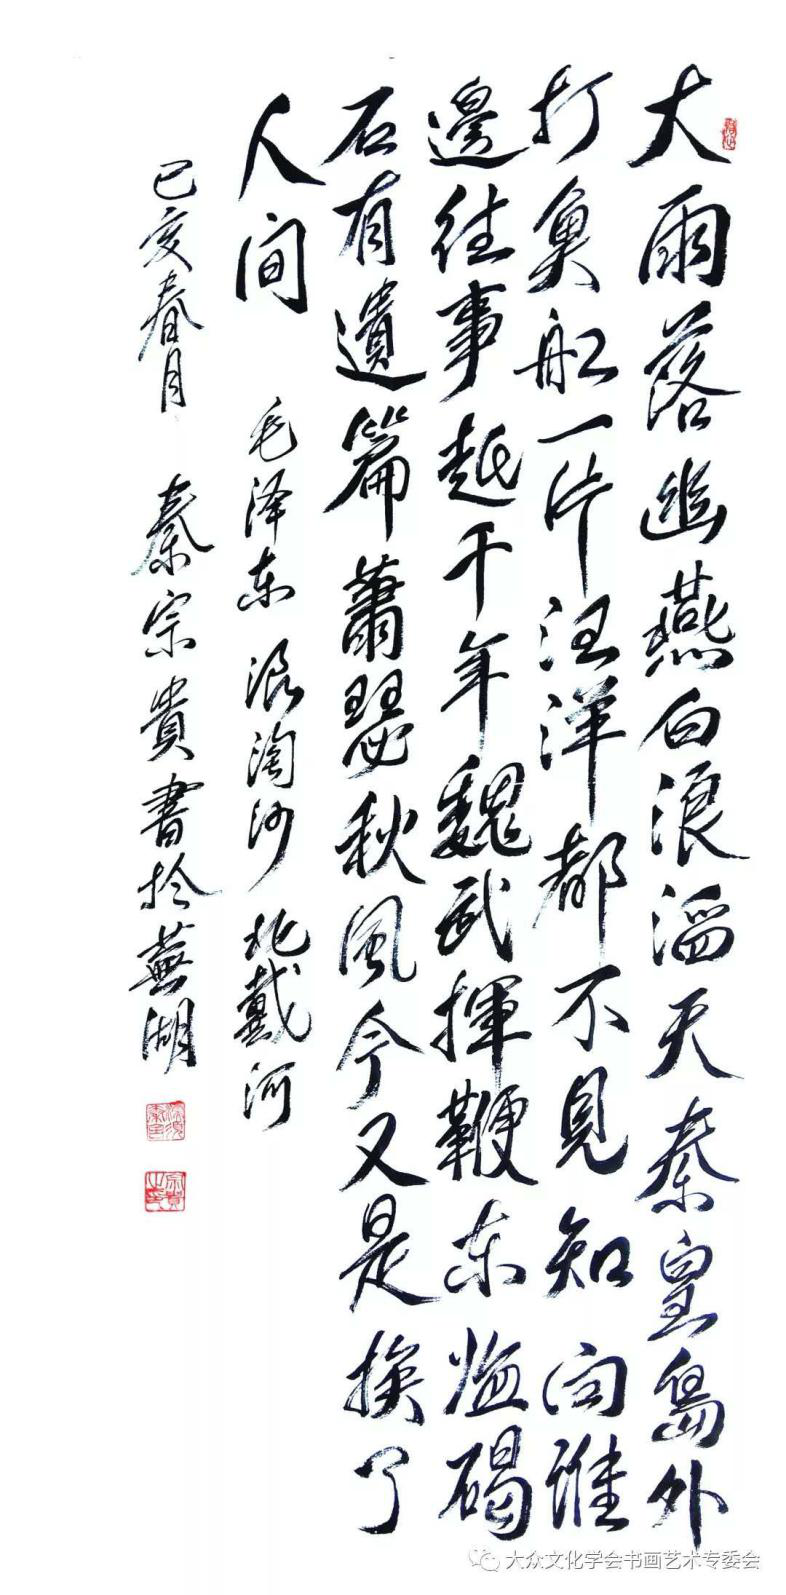 大雨落幽燕白浪滔天秦皇島外
打魚船一片汪洋都不見知向誰
邊往事越千年魏武揮鞭东临碣
石有遺篇蕭瑟秋風今又是换了
人间 毛泽东 浪淘沙 北戴河
己亥春月 秦宗貴書於蕪湖
大众文化学会书画艺术专委会